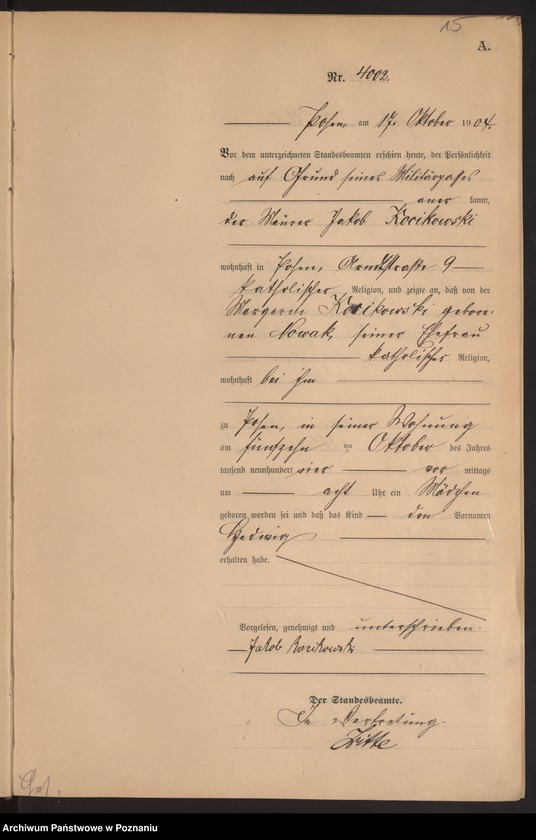 15
A.
Nr. 4002.
Posen, am 17. Oktober 1904.
Vor dem unterzeichneten Standesbeamten erschien heute, der Persönlichkeit
nach auf Grund seines Militärpasses
aner kannt,
der Maurer Jakob Kocikowski
wohnhaft in Posen, Arndtstraße 9
katholischer Religion, und zeigte an, daß von der
Kocikowski gebore-
nen Nowak, seiner Ehefrau
katholischer Religion,
wohnhaft bei ihm
zu Posen, in seiner Wohnung
am fünfzehn ten Oktober des Jahres
tausend neunhundert vier vor mittags
um acht Uhr ein Mädchen
geboren worden sei und daß das Kind den Vornamen
Hedwig
erhalten habe.
Vorgelesen, genehmigt und unterschrieben.
Jakob Kocikowski
Der Standesbeamte.
In Vertretung.
Archiwum Państwowe w Poznaniu